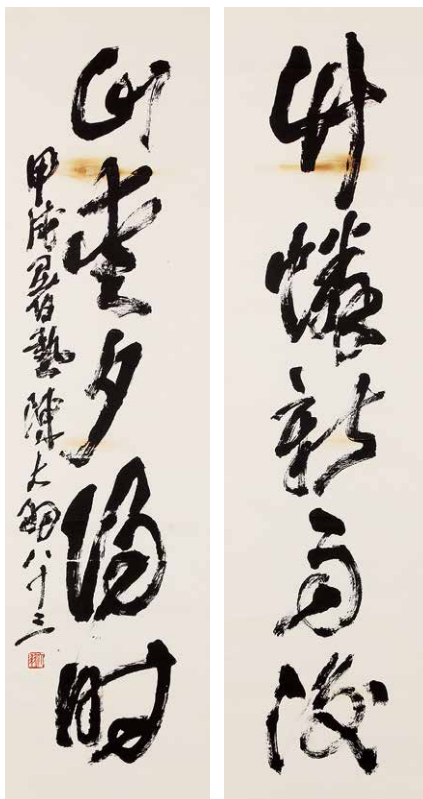 竹憐新雨後
山愛夕陽時
甲戌藝陳大羽八十三